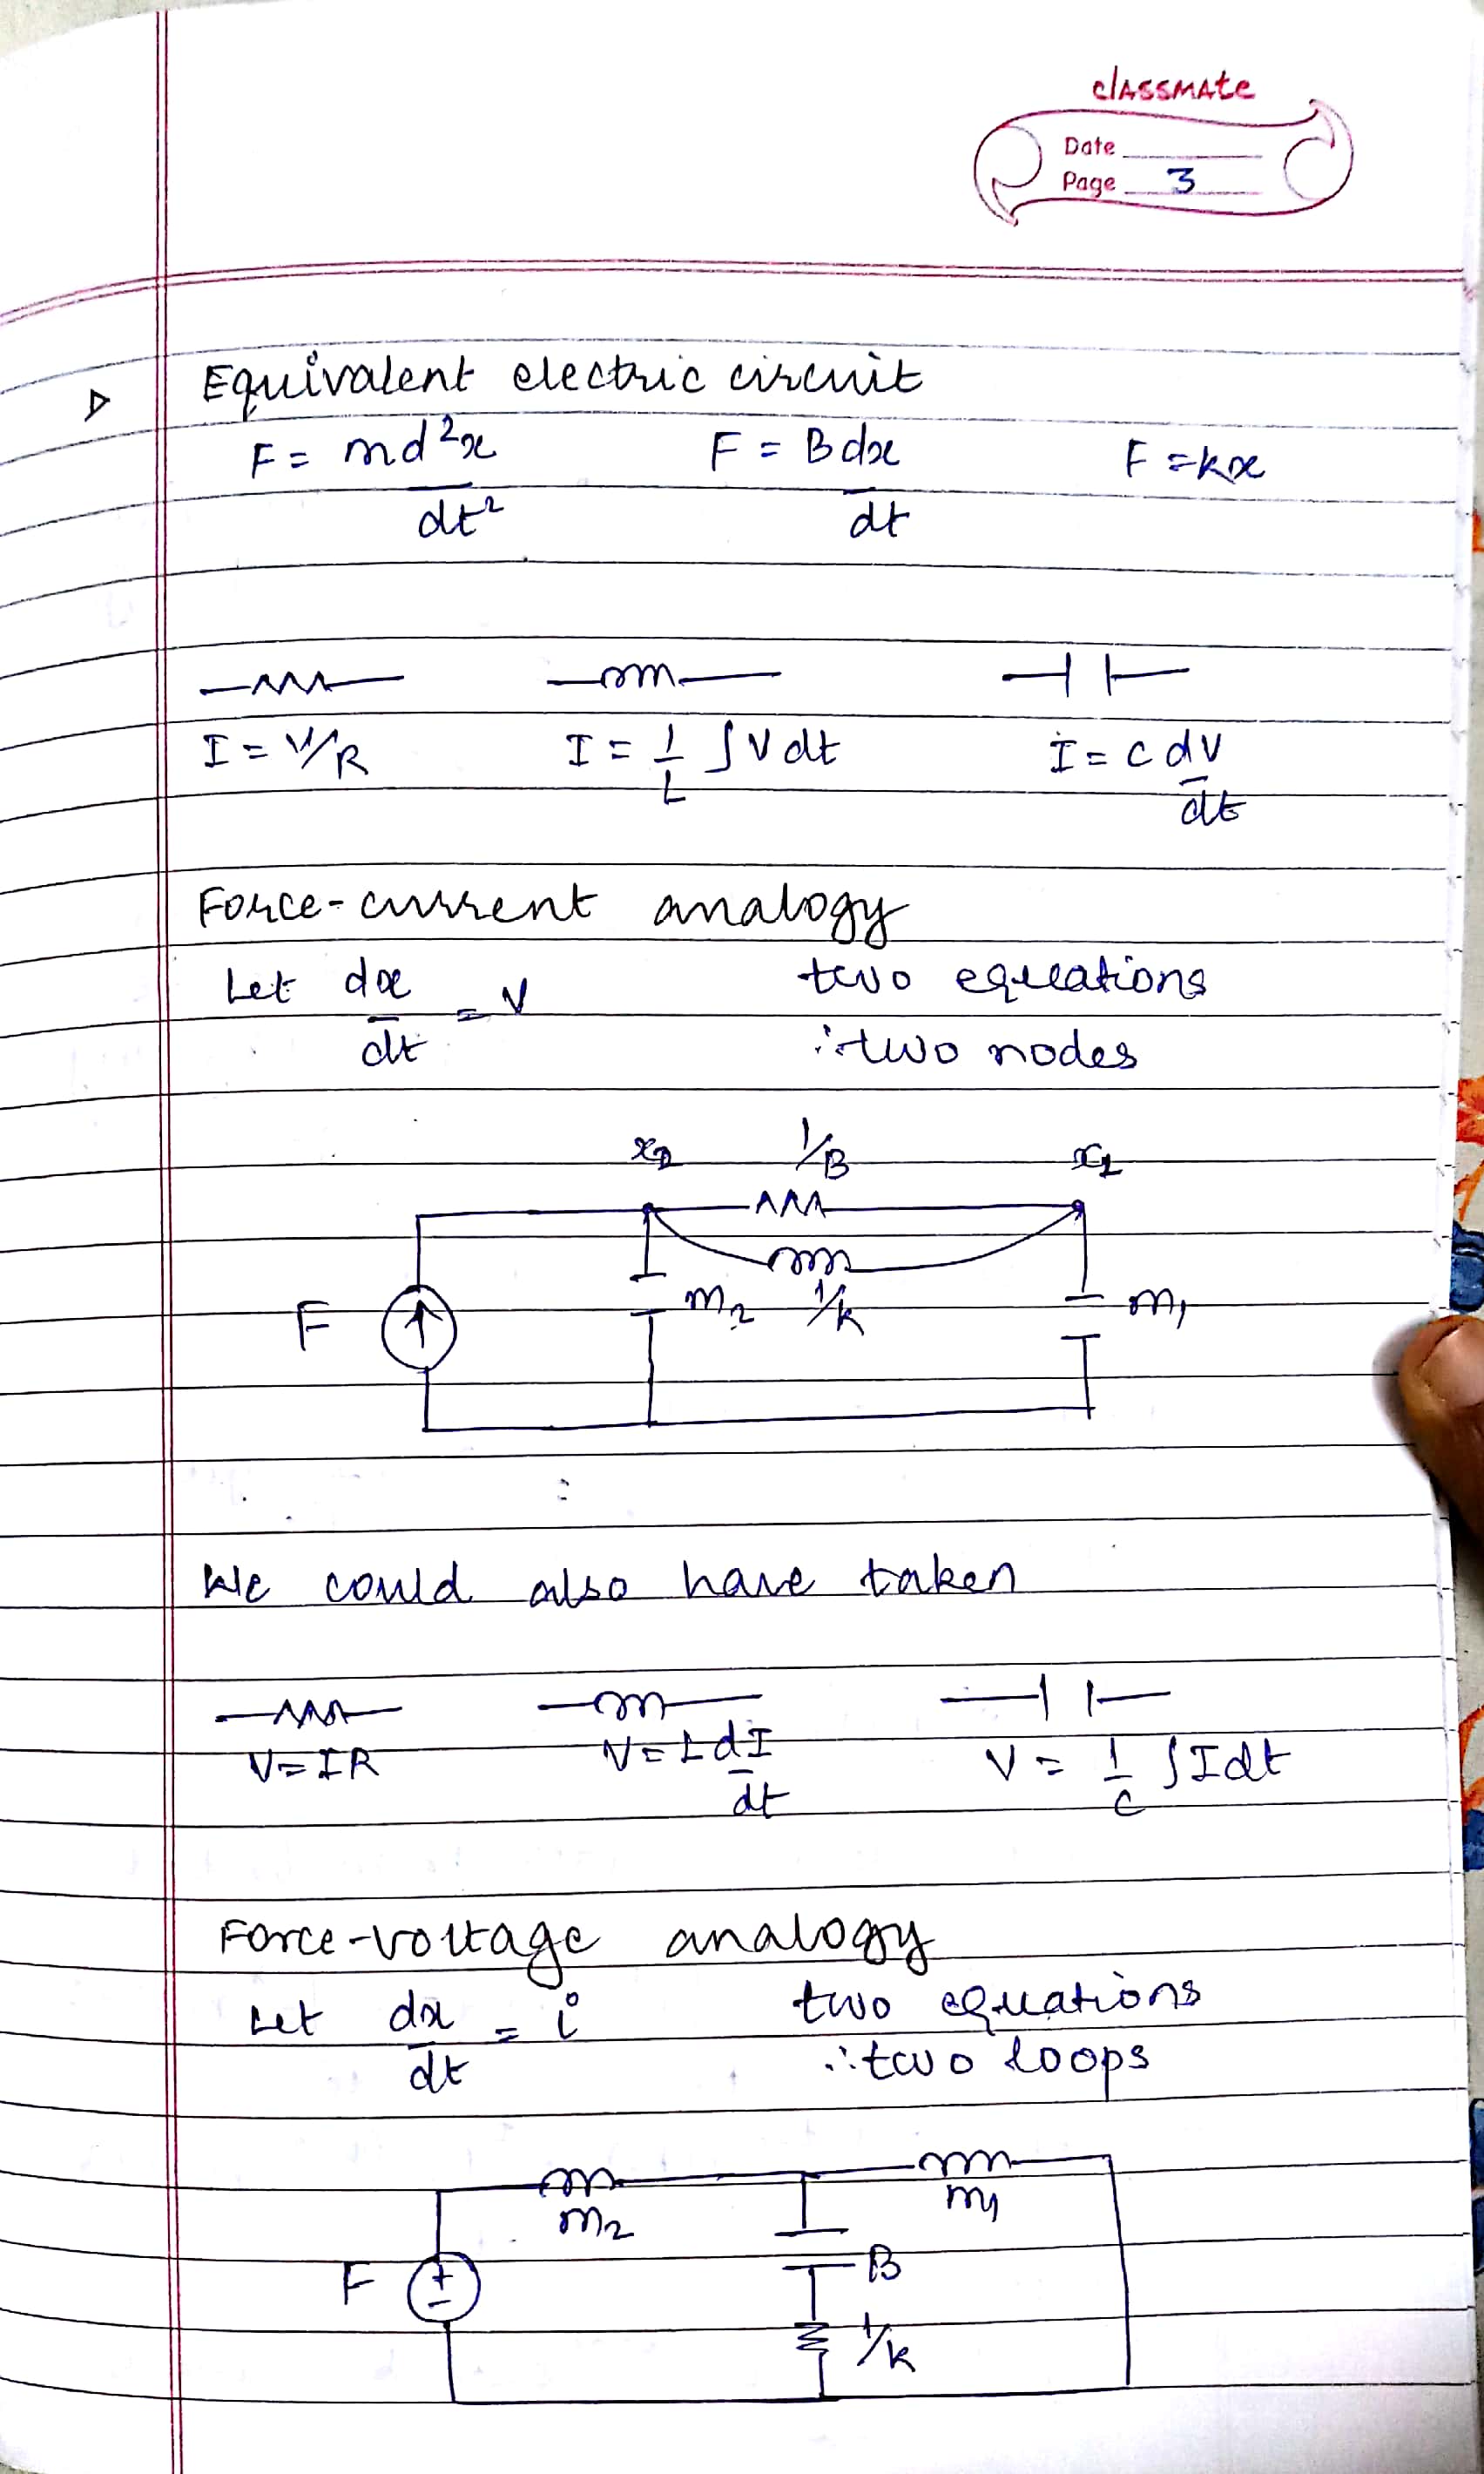 classmate
Date
Page 3
Equivalent electric circuit
F = md²x/dt² F = Bdx/dt F = kx
I = V/R I = 1/L ∫Vdt I = C dV/dt
Force-current analogy
Let dx/dt = V two equations
∴ two nodes
x₂ 1/B x₁
F m₂ 1/k m₁
We could also have taken
V=IR V=L dI/dt V = 1/C ∫Idt
Force-voltage analogy
Let dx/dt = i two equations
∴ two loops
m₂ m₁
F + - B
1/k